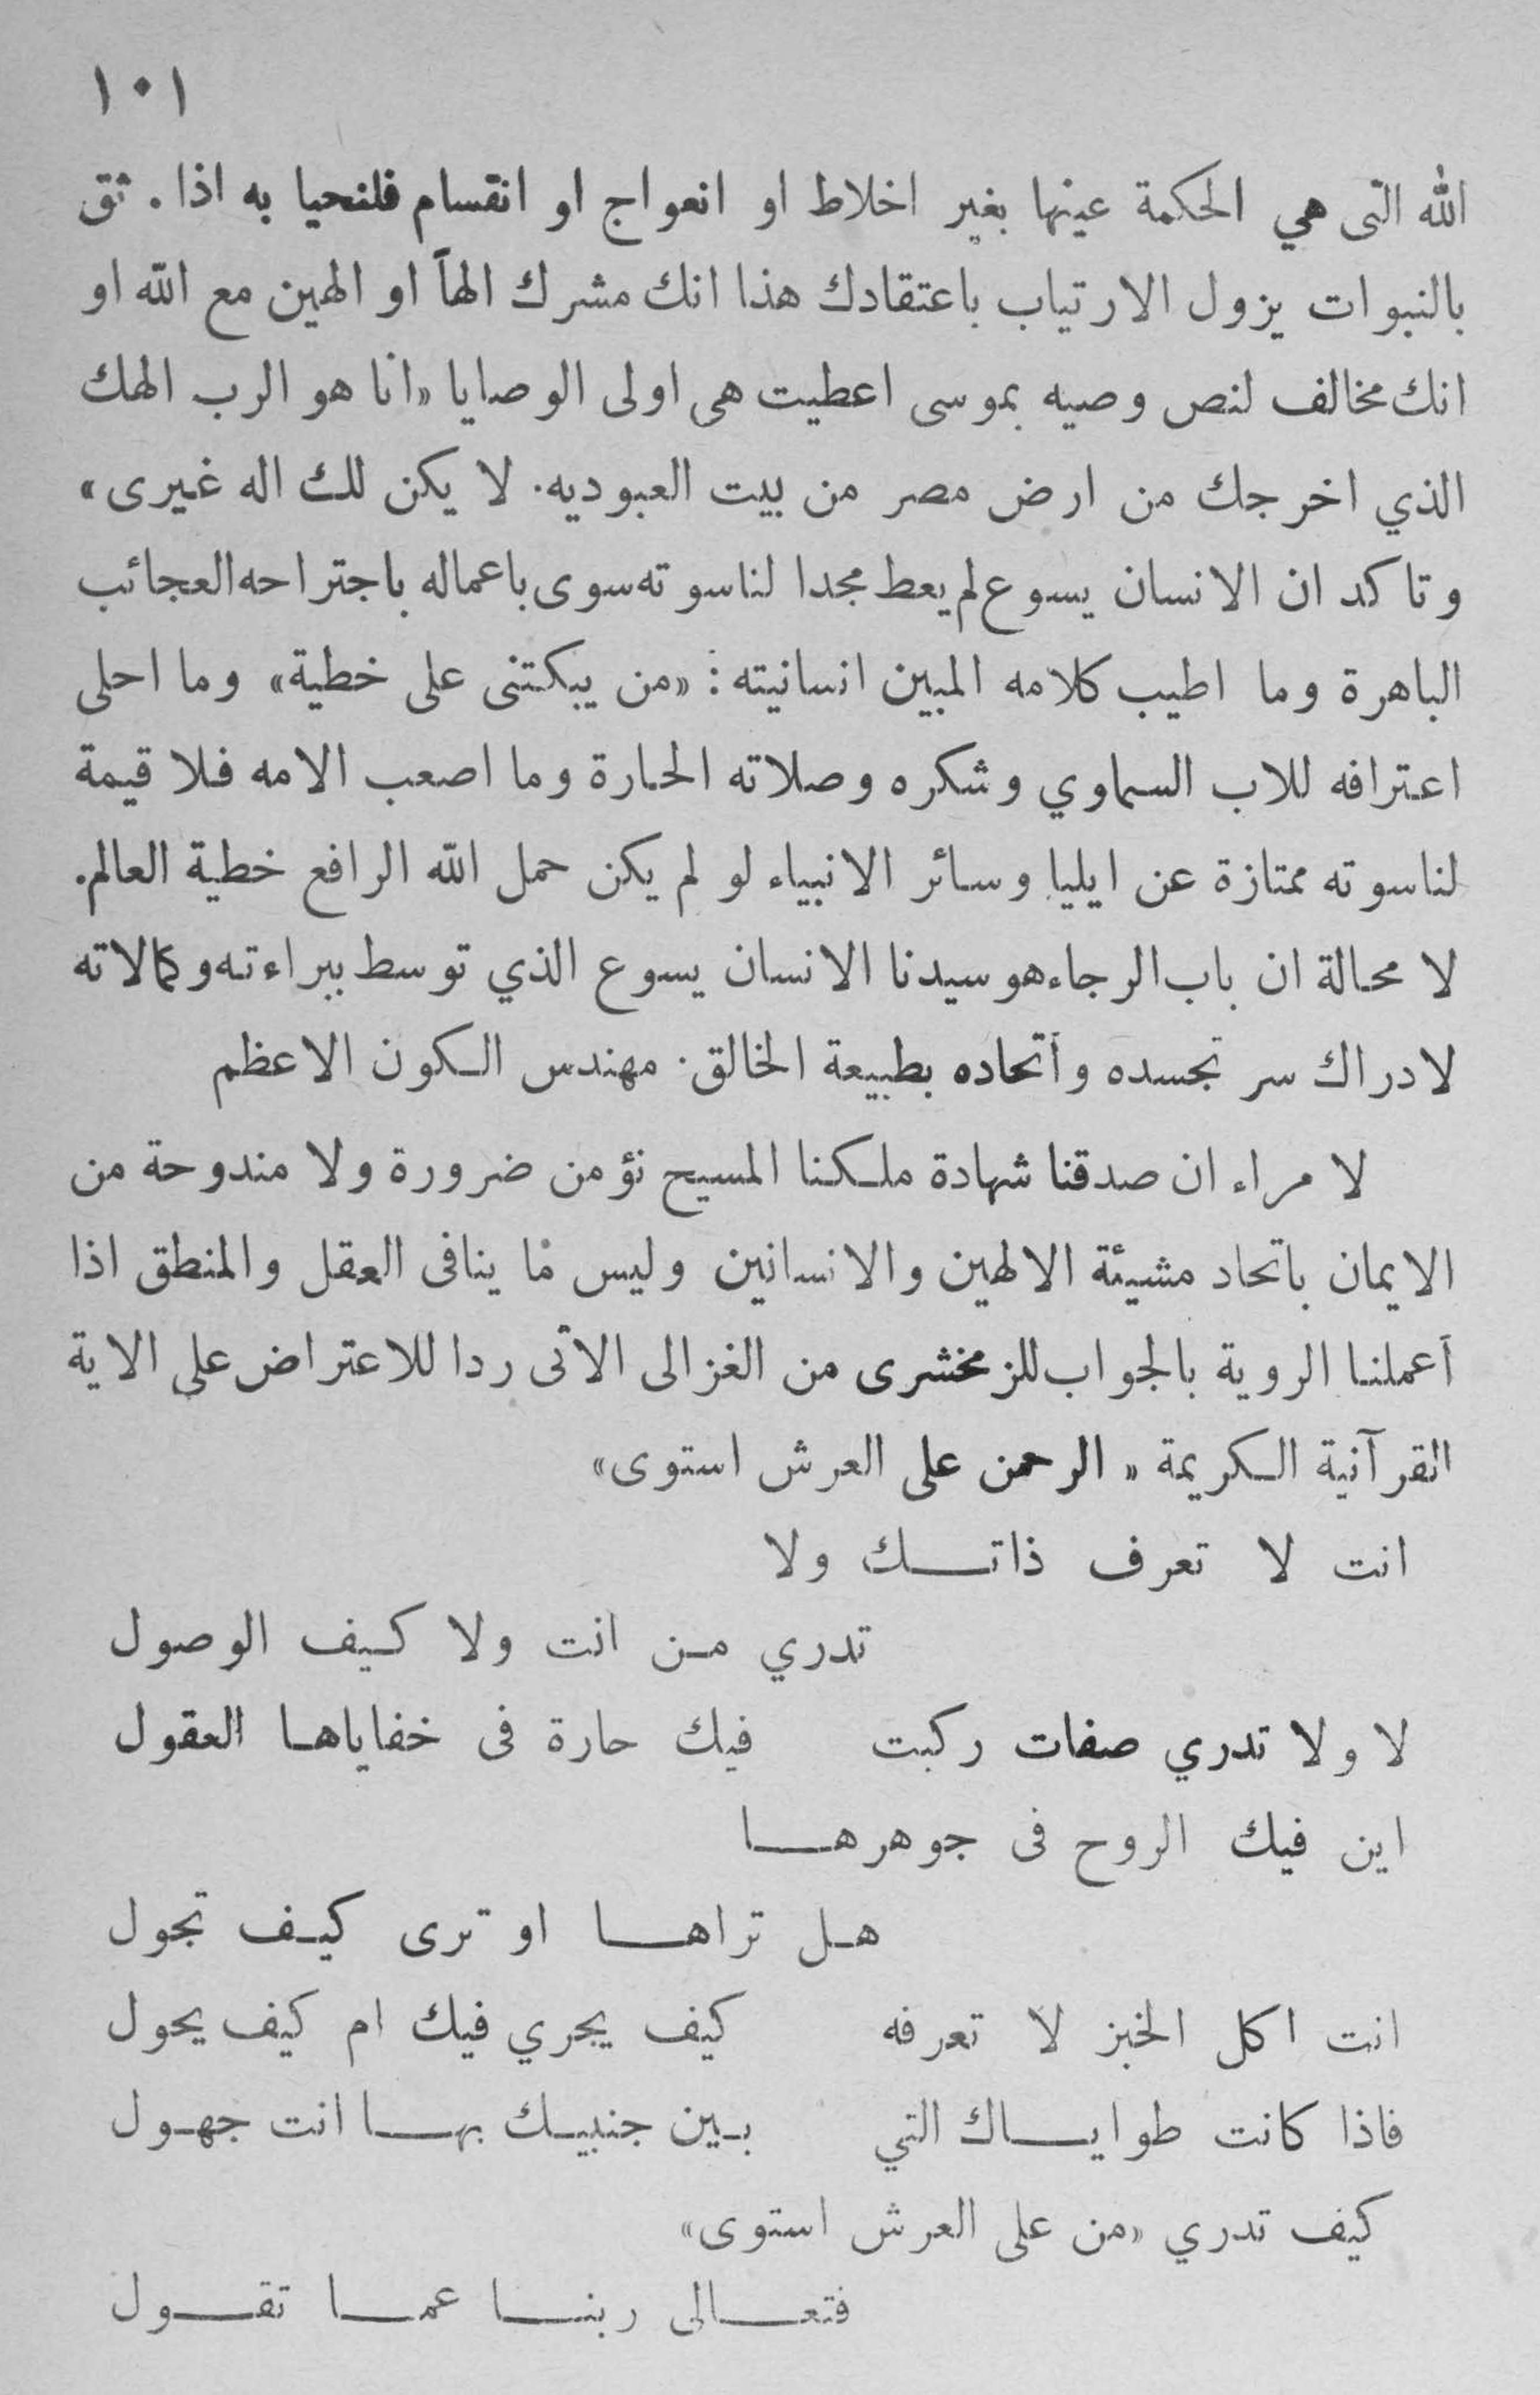 ١٠١
الله التى هي الحكمة عينها بغير اخلاط او انعواج او انقسام فلنحيا به اذا . ثق
بالنبوات يزول الارتياب باعتقادك هذا انك مشرك الهاً او الهين مع الله او
انك مخالف لنص وصيه بموسى اعطيت هى اولى الوصايا «انا هو الرب الهك
الذي اخرجك من ارض مصر من بيت العبوديه. لا يكن لك اله غيرى»
وتاكد ان الانسان يسوع لم يعط مجدا لناسوته سوى باعماله باجتراحه العجائب
الباهرة وما اطيب كلامه المبين انسانيته : «من يبكتنى على خطية» وما احلى
اعترافه للاب السماوي وشكره وصلاته الحارة وما اصعب الامه فلا قيمة
لناسوته ممتازة عن ايليا وسائر الانبياء لو لم يكن حمل الله الرافع خطية العالم.
لا محالة ان باب الرجاء هو سيدنا الانسان يسوع الذي توسط ببراءته وكمالاته
لادراك سر تجسده وأتحاده بطبيعة الخالق . مهندس الكون الاعظم
لا مراء ان صدقنا شهادة ملكنا المسيح نؤمن ضرورة ولا مندوحة من
الايمان باتحاد مشيئة الالهين والانسانين وليس ما ينافى العقل والمنطق اذا
أعملنا الروية بالجواب للزمخشرى من الغزالى الاتى ردا للاعتراض على الاية
القرآنية الكريمة « الرحمن على العرش استوى»
انت لا تعرف ذاتك ولا
تدري من انت ولا كيف الوصول
لا ولا تدري صفات ركبت فيك حارة فى خفاياها العقول
اين فيك الروح فى جوهرها
هل تراها او ترى كيف تجول
انت اكل الخبز لا تعرفه كيف يجري فيك ام كيف يحول
فاذا كانت طواياك التي بين جنبيك بها انت جهول
كيف تدري «من على العرش استوى»
فتعالى ربنا عما تقول